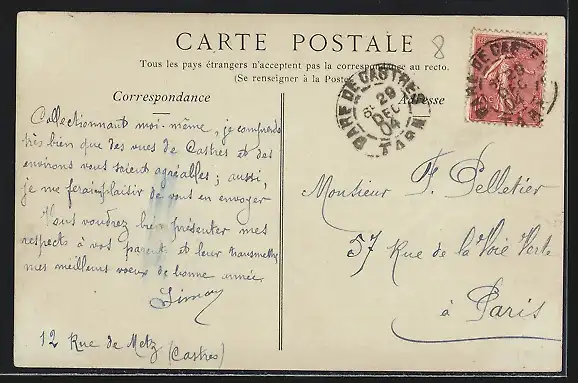 CARTE POSTALE
8
Tous les pays étrangers n'acceptent pas la correspondance au recto.
(Se renseigner à la Poste
Correspondance
Adresse
GARE DE CASTRES
29
DEC
04
TARN
GARE DE CAST
29
DEC
04
TARN
Collectionnant moi-même, je comprends
très bien que des vues de Castres et des
environs vous soient agréables ; aussi,
je me ferai plaisir de vous en envoyer
Vous voudrez bien présenter mes
respects à vos parents et leur transmettre
mes meilleurs voeux de bonne année
Simon
12 Rue de Metz (Castres)
Monsieur F. Pelletier
57 Rue de la Voie Verte
à Paris